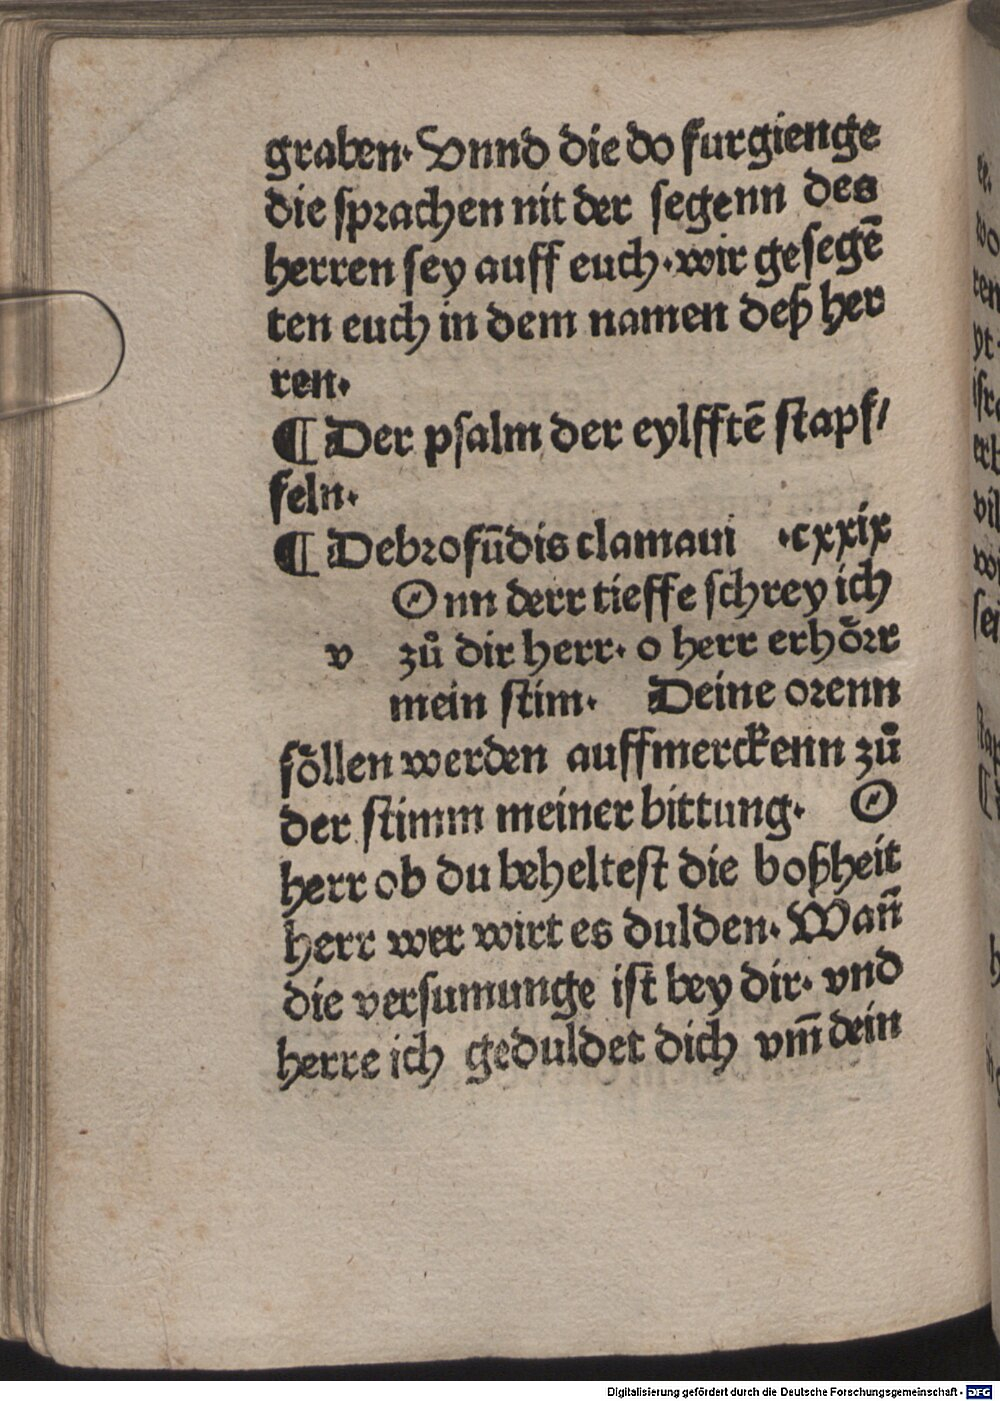 graben· Vnnd die do furgienge
die sprachen nit der segenn des
herren sey auff euch·wir gesegē
ten euch in dem namen deß her
ren·
¶ Der psalm der eylfftē stapf/
feln·
¶ Debrofūdis clamaui ·cxxix
Onn derr tieffe schrey ich
v zů dir herr· o herr erhőrr
mein stim· Deine orenn
sőllen werden auffmerckenn zů
der stimm meiner bittung· O
herr ob du beheltest die boßheit
herr wer wirt es dulden· Wan̄
die versumunge ist bey dir· vnd
herre ich geduldet dich vm̄ dein
Digitalisierung gefördert durch die Deutsche Forschungsgemeinschaft - DFG